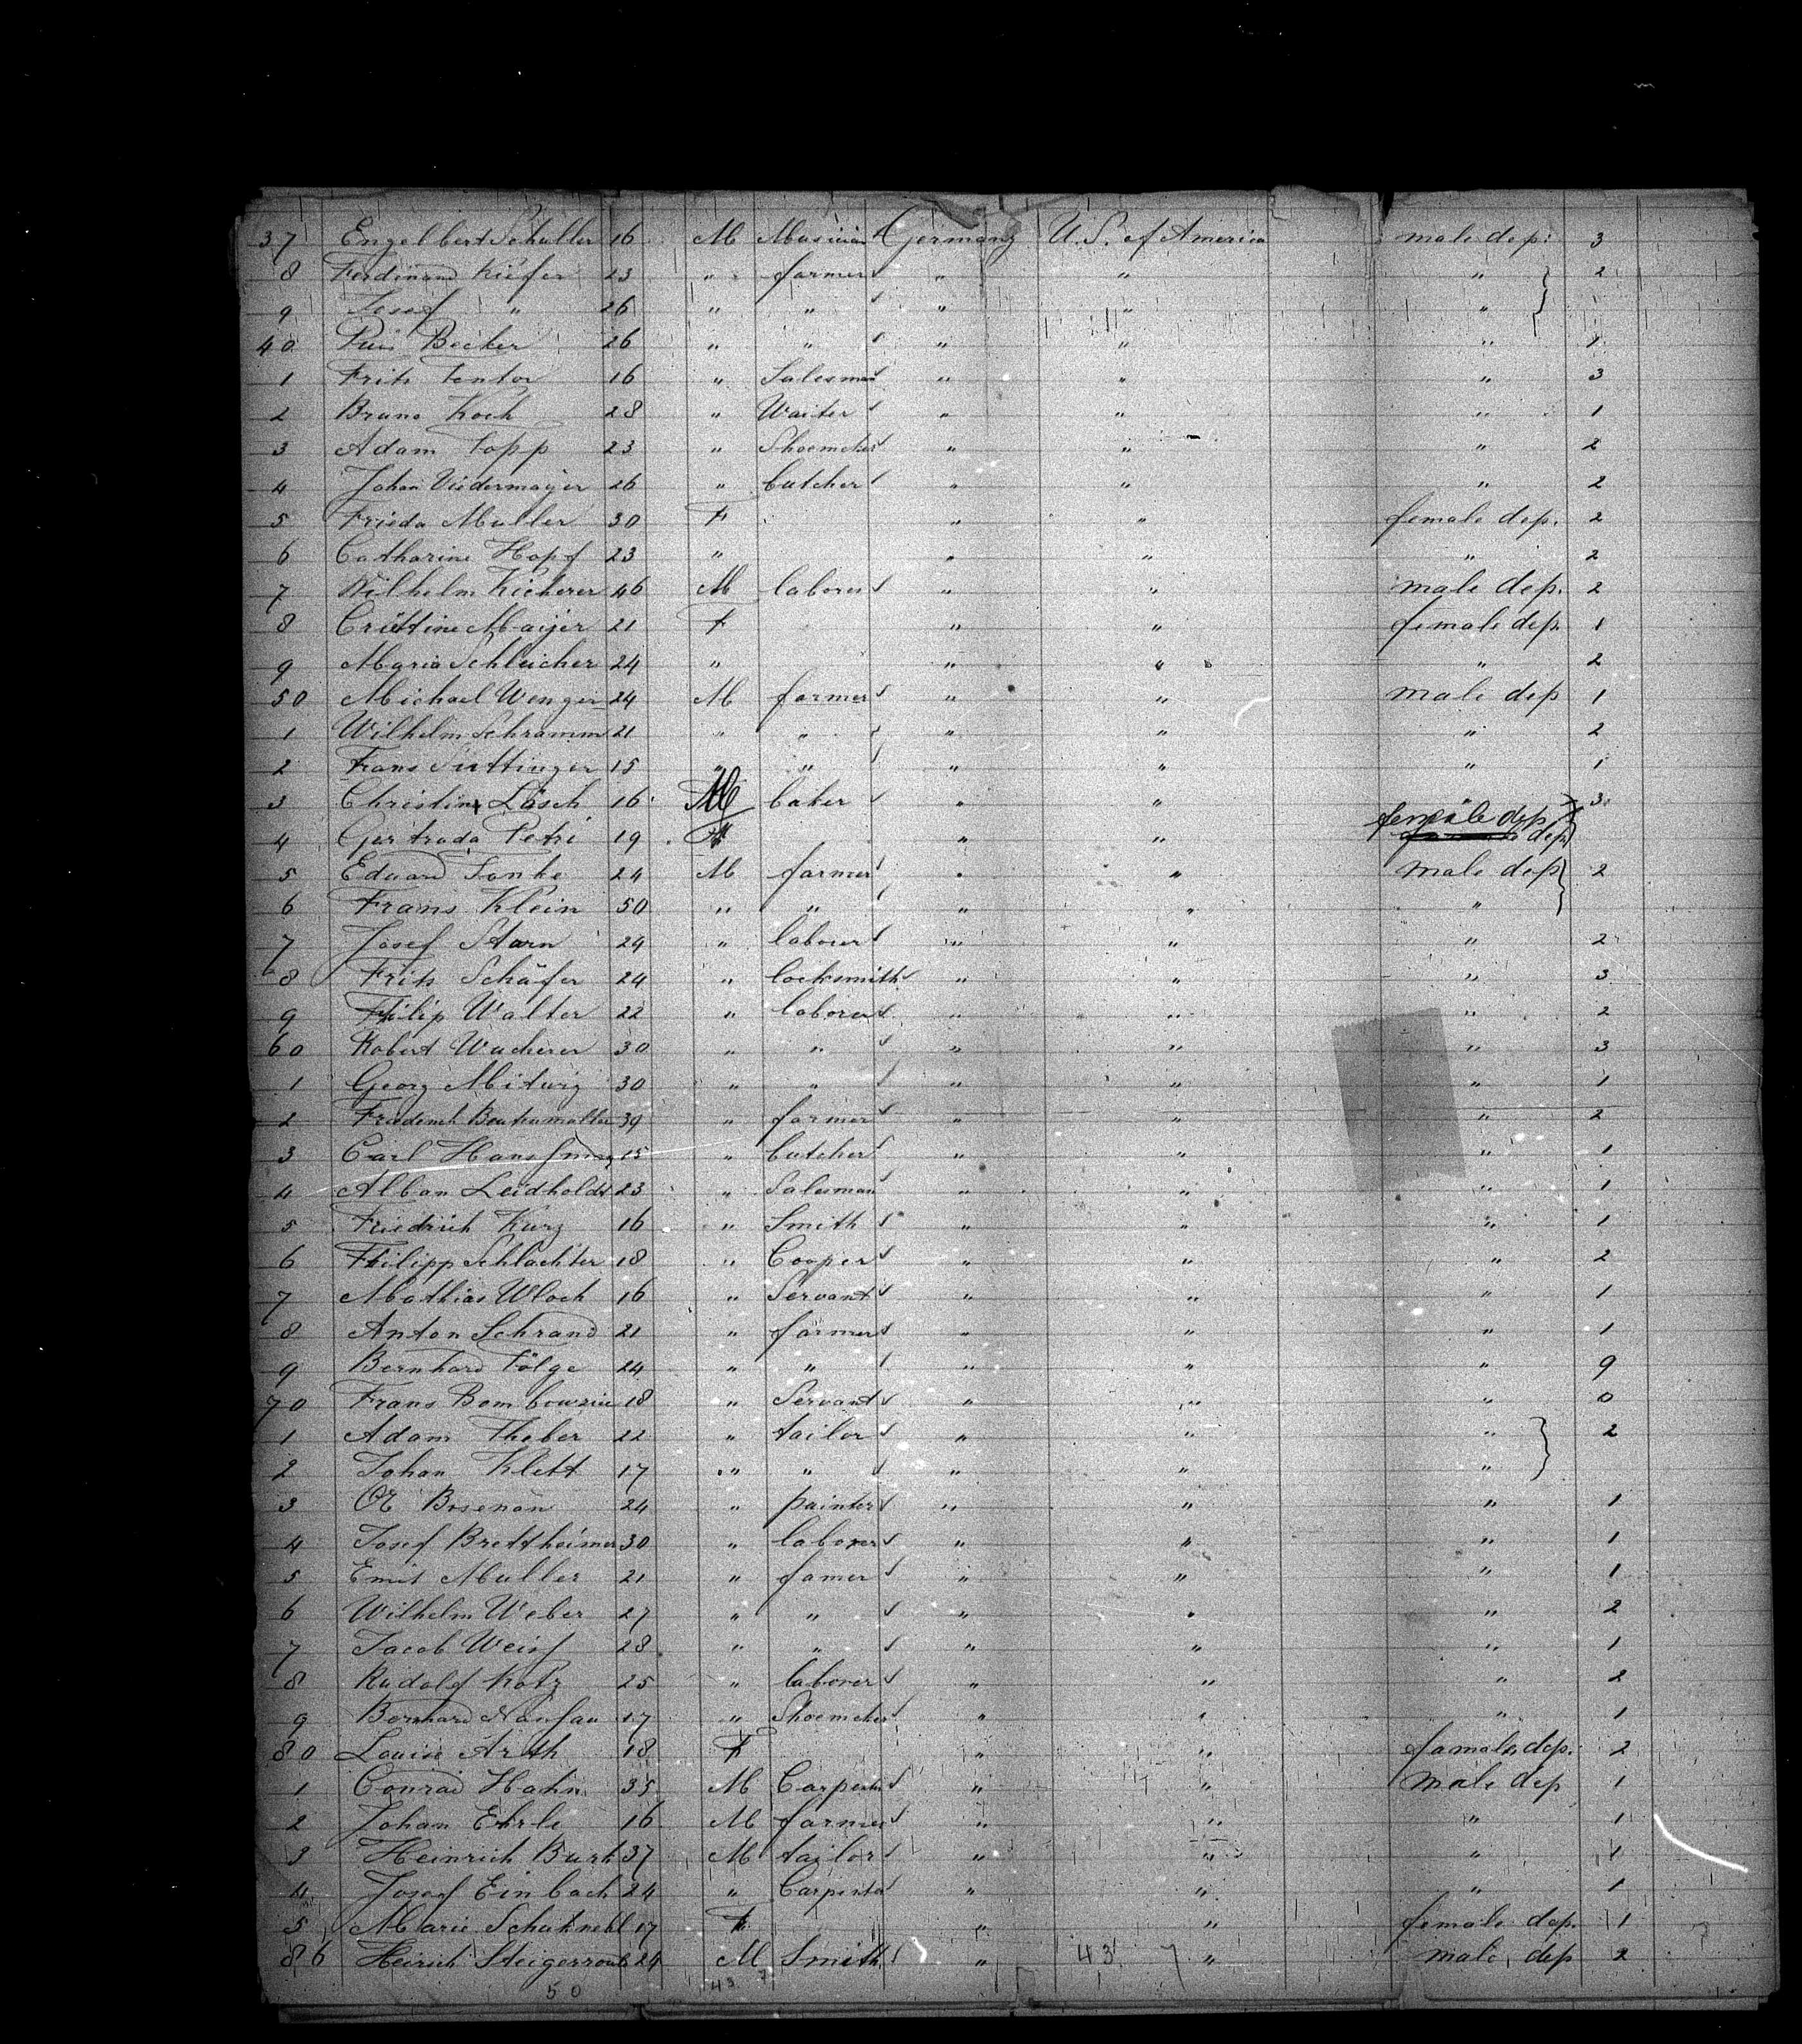 37 Engelbert Schuller 16 M Musician Germany U.S. of America male dep: 3
8 Ferdinand Kiefer 23 " farmer " " " 2
9 Josef " 26 " " " " "
40 Pius Becker 26 " " " " " 1
1 Frits 16 " Salesman " " " 3
2 Bruno Koch 28 " Waiter " " " 1
3 Adam Topp 23 " Shoemcker " " " 2
4 Johan Viedermayer 26 " butcher " " " 2
5 Frieda Muller 30 F " " female dep. 2
6 Catharine Hopf 23 " " " " 2
7 Wilhelm Kicherer 46 M laborer " " male dep. 2
8 Maijer 21 F " " female dep. 1
9 Maria Schleicher 24 " " " " 2
50 Michael Wenger 24 M farmer " " male dep 1
1 Wilhelm Schramm 21 " " " " " 2
2 Frans 15 " " " " " 1
3 Christine Lösch 16 M baker " " 3
4 Gertruda Petri 19 F " " female dep. dep.
5 Eduard 24 M farmer " " male dep 2
6 Frans Klein 50 " " " " "
7 Josef Starn 24 " laborer " " " 2
8 Frits Schäfer 24 " locksmith " " " 3
9 Philip Walter 22 " laborer " " " 2
60 Robert Wucherer 30 " " " " " 3
1 Georg Mitwig 30 " " " " " 1
2 Friederich 39 " farmer " " " 2
3 Carl 15 " butcher " " " 1
4 Alban Leidholdt 23 " Salesman " " " 1
5 Friedrich Kurz 16 " Smith " " " 1
6 Philipp Schlachter 18 " Cooper " " " 2
7 Mathias Wloch 16 " Servant " " " 1
8 Anton Schrand 21 " farmer " " " 1
9 Bernhard Tölge 24 " " " " " 9
70 Frans 18 " Servant " " " 0
1 Adam Theber 22 " tailor " " " 2
2 Johan Klett 17 " " " " "
3 Bosenan 24 " painter " " " 1
4 Josef Brettheimer 30 " laborer " " " 1
5 Emil Muller 21 " famer " " " 1
6 Wilhelm Weber 27 " " " " " 2
7 Jacob Weiss 28 " " " " " 1
8 Rudolf Kotz 25 " laborer " " " 2
9 Bernhard 17 " Shoemcker " " " 1
80 Louise Arth 18 F " " famale dep. 2
1 Conrad Hahn 35 M Carpenter " " male dep 1
2 Johan Ehrle 16 M farmer " " " 1
3 Heinrich Burk 37 M tailor " " " 1
4 Josef Einbach 24 " Carpenter " " " 1
5 Marie Schuknehl 17 F " " female dep. 1
86 Heirich 24 M Smith " 43 7 " male dep 2
50 43 7